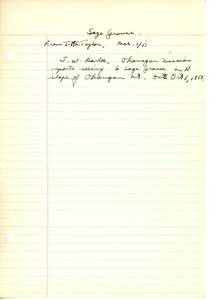 Sage Grouse.
From Taylor, Mar. 1/51
J. W. Banks, Okanagan Mission
reports seeing 6 sage grouse on N
slope of Okanagan Mt. Oct 1, 1950.